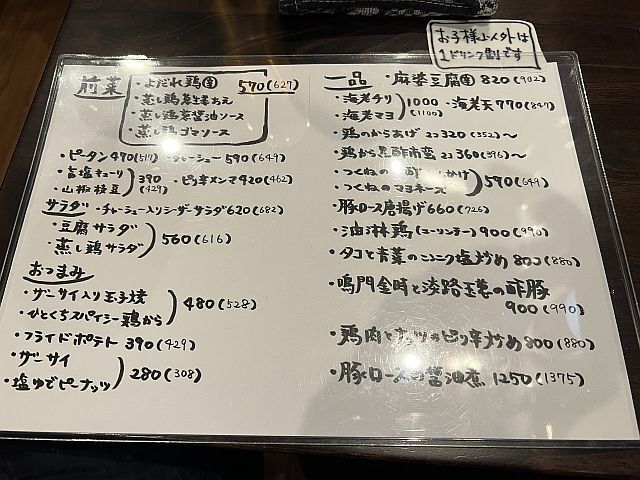 お子様以外は
1ドリンク制です
前菜
・よだれ鶏
570(627)
・蒸し鶏
・蒸し鶏 醤油ソース
・蒸し鶏ゴマソース
・ピータン470(517) チャーシュー590(649)
・旨塩キューリ
・山椒枝豆
390
(429)
・ピリ辛メンマ420(462)
サラダ ・チャーシュー入りシーザーサラダ620(682)
・豆腐サラダ
・蒸し鶏サラダ
560(616)
おつまみ
・ザーサイ入り玉子焼
・ひとくちスパイシー鶏から
480(528)
・フライドポテト 390(429)
・ザーサイ
・塩ゆでピーナッツ
280(308)
一品 ・麻婆豆腐 820(902)
・海老チリ
・海老マヨ
1000
(1100)
・海老天770(847)
・鶏のからあげ 2コ320(352)〜
・鶏から黒酢南蛮 2コ360(396)〜
・つくねの 酢 かけ
・つくねのマヨネーズ
590(649)
・豚ロース唐揚げ660(726)
・油淋鶏(ユーリンチー) 900(990)
・タコと青菜のニンニク塩炒め 800(880)
・鳴門金時と淡路玉葱の酢豚
900(990)
・鶏肉とナッツのピリ辛炒め800(880)
・豚ロースの醤油煮 1250(1375)